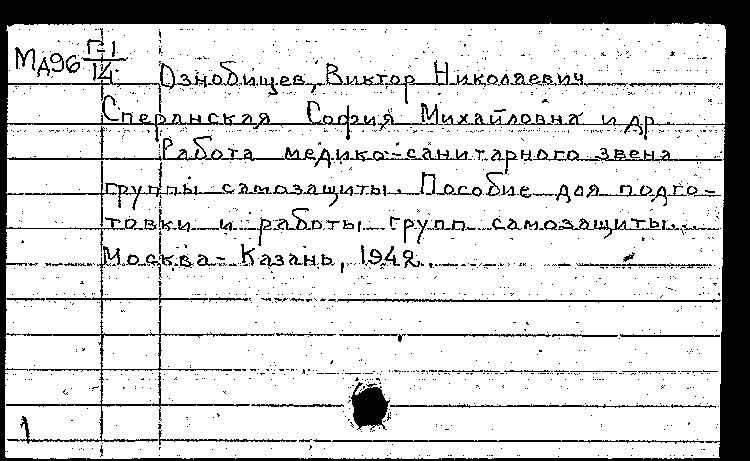 МА96 Г-1/14
Ознобищев, Виктор Николаевич
Сперанская София Михайловна и др.
Работа медико-санитарного звена
группы самозащиты. Пособие для подго-
товки и работы групп самозащиты...
Москва - Казань, 1942.
1